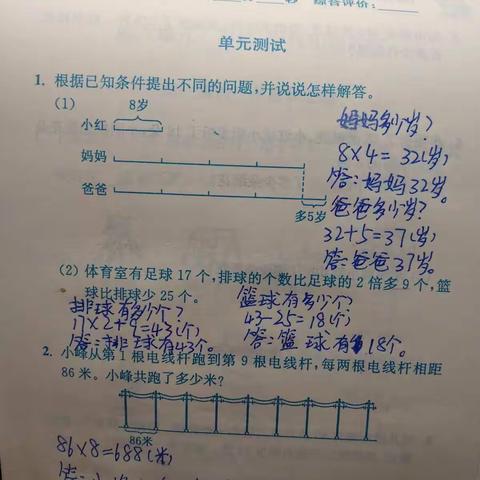 综合评价:
单元测试
1. 根据已知条件提出不同的问题,并说说怎样解答。
(1)
8岁
小红
妈妈
爸爸
多5岁
妈妈多少岁?
8×4=32(岁)
答:妈妈32岁。
爸爸多少岁?
32+5=37(岁)
答:爸爸37岁。
(2) 体育室有足球 17 个,排球的个数比足球的 2 倍多 9 个,篮
球比排球少 25 个。
排球有多少个?
17×2+9=43(个)
答:排球有43个。
篮球有多少个?
43-25=18(个)
答:篮球有18个。
2. 小峰从第 1 根电线杆跑到第 9 根电线杆,每两根电线杆相距
86 米。小峰共跑了多少米?
86米
86×8=688(米)